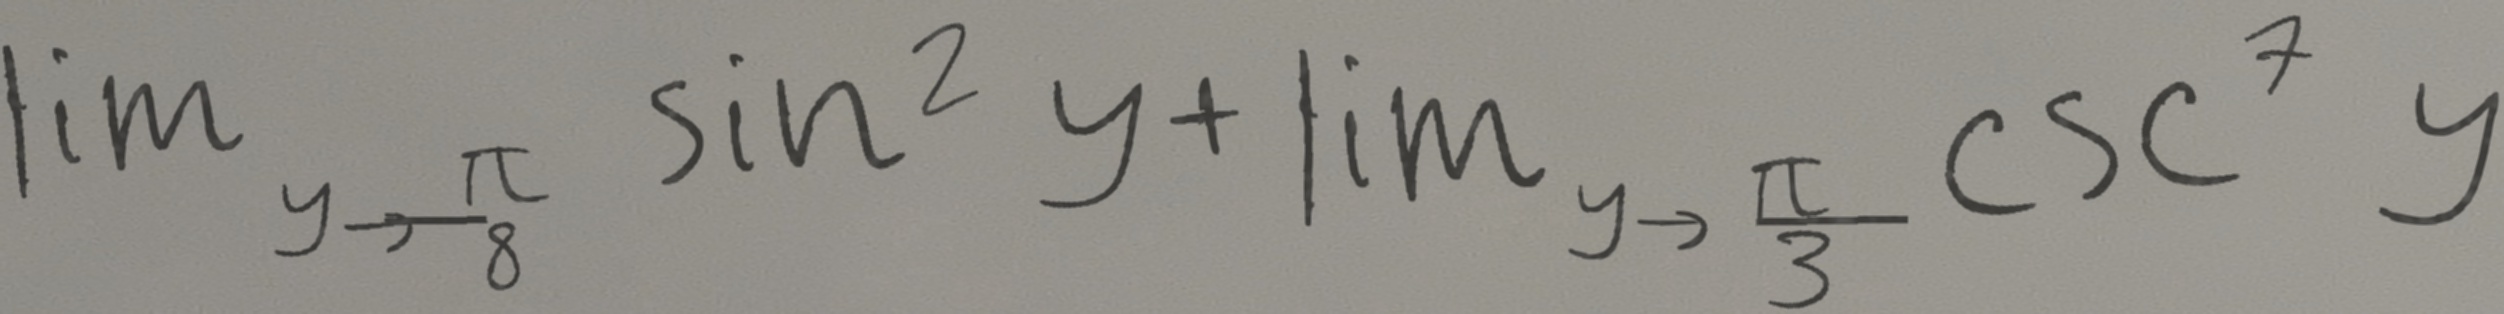 \lim_{y \to \frac{\pi}{8}} \sin^2 y + \lim_{y \to \frac{\pi}{3}} \csc^7 y